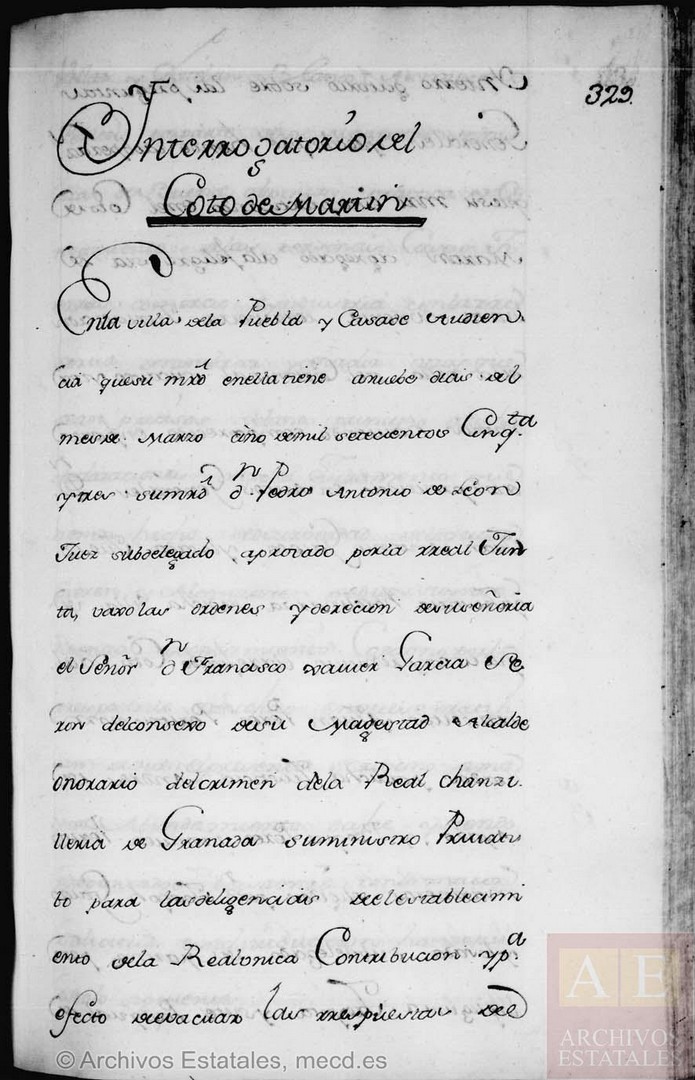 329.
Interrogatorio del
Coto de Martin
Enla villa dela Puebla y Casa de Audien
cia que su mrd enella tiene anuebe dias del
mes de Marzo año demil setecientos Cinqta
ytres sumrd dn Pedro Antonio de Leon
Juez subdelegado, aprovado porla rreal Jun
ta, vaxo las ordenes yderecion desuseñoria
el Señor dn Francisco xavier Garcia
delconsexo desu Magestad Alcalde
onorario delcrimen dela Real chanzi
lleria de Granada suministro Privati
bo para lasdeligencias delestablecimi
ento dela Realonica Contribucion ypa
efecto deevacuar las rrespuestas del
© Archivos Estatales, mecd.es
AE
ARCHIVOS
ESTATALES